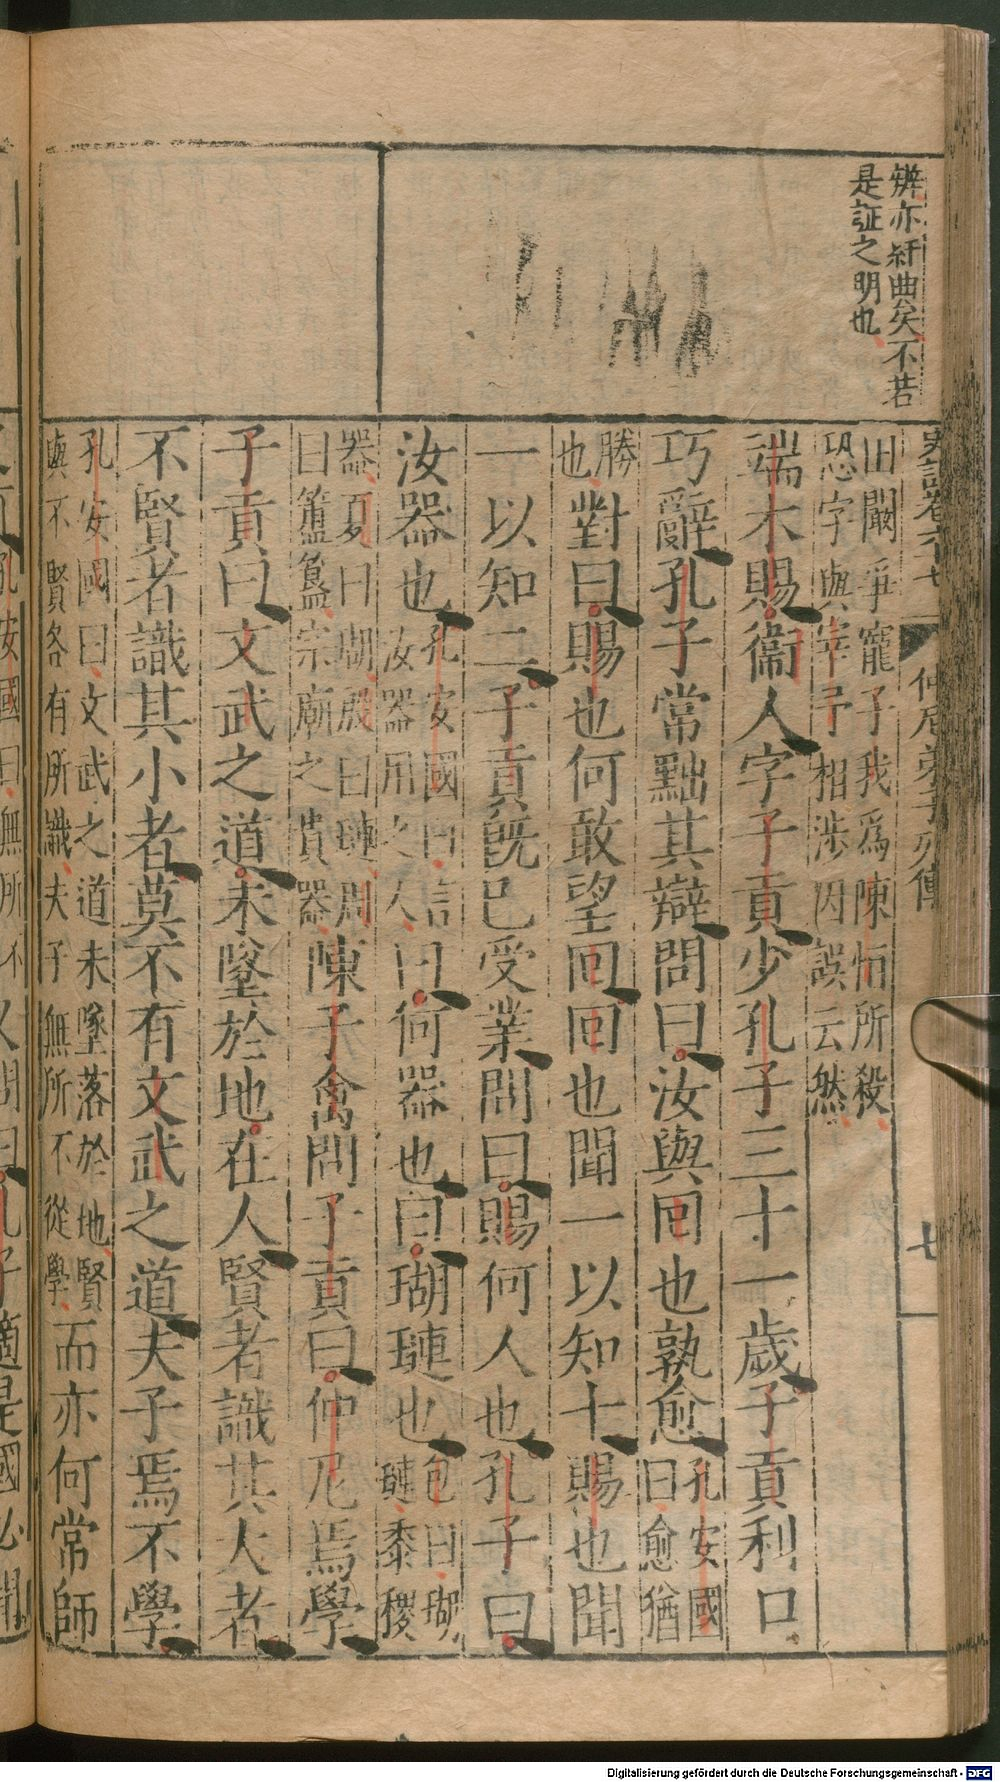 辨亦紆曲矣不若
是証之明也
史記卷六十七 仲尼弟子列傳 七
田闞爭寵子我爲陳恒所殺
恐字與宰予相涉因誤云然
端木賜衞人字子貢少孔子三十一歲子貢利口
巧辭孔子常黜其辯問曰汝與回也孰愈孔安國曰愈猶
勝也對曰賜也何敢望回回也聞一以知十賜也聞
一以知二子貢旣已受業問曰賜何人也孔子曰
汝器也孔安國曰言汝器用之人曰何器也曰瑚璉也包曰瑚璉黍稷
器夏曰瑚殷曰璉周曰簠簋宗廟之貴器陳子禽問子貢曰仲尼焉學
子貢曰文武之道未墜於地在人賢者識其大者
不賢者識其小者莫不有文武之道夫子焉不學
孔安國曰文武之道未墜落於地賢與不賢各有所識夫子無所不從學而亦何常師
孔安國曰無所不 又問曰孔子適是國必聞
Digitalisierung gefördert durch die Deutsche Forschungsgemeinschaft - DFG